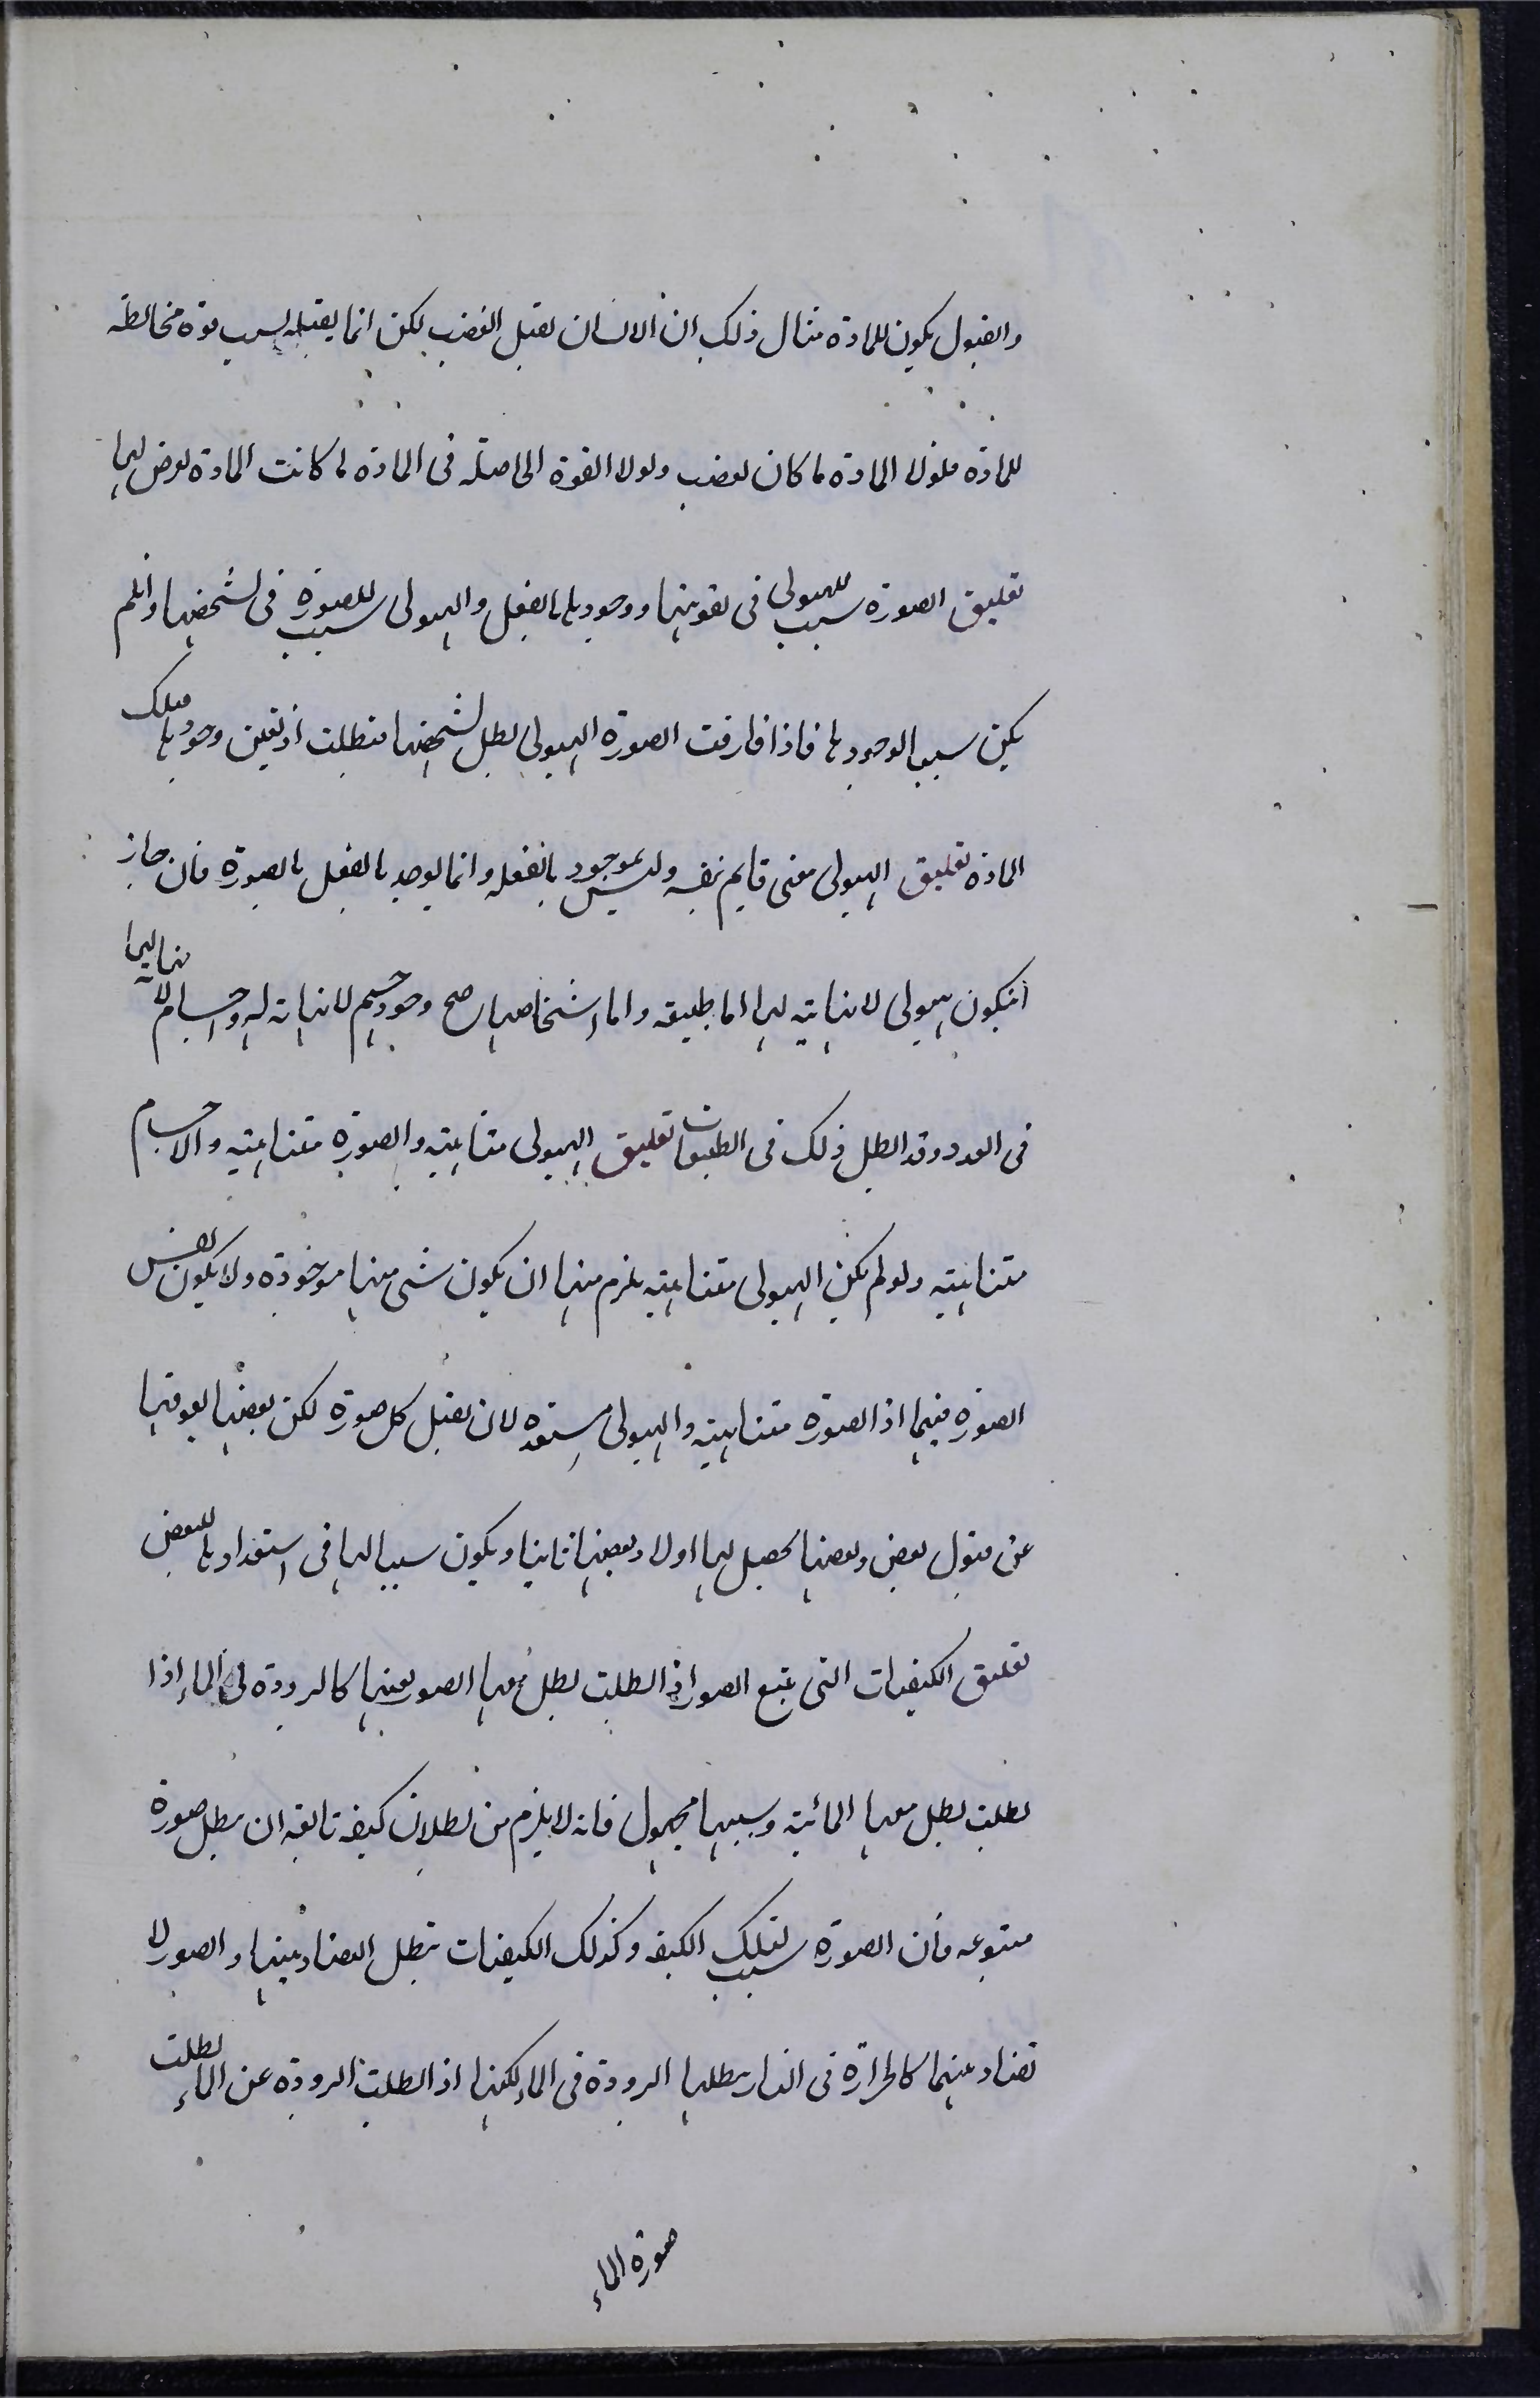 والقبول يكون للمادة مثال ذلك ان الانسان يقبل الغضب لكن انما يقبله لسبب قوة مخالطة
للمادة فلولا المادة لما كان يغضب ولولا القوة الحاصلة فى المادة لما كانت المادة يعرض لها
تعليق الصورة سبب للهيولى فى تقويتها ووجودها بالفعل والهيولى سبب للصورة فى تشخصها وان لم
يكن سببا لوجودها فاذا فارقت الصورة الهيولى بطل تشخصها فبطلت اذ تعلق وجودها بتلك
المادة تعليق الهيولى معنى قايم بنفسه وليس بموجود بالفعل وانما يوجد بالفعل بالصورة فان جاز
ان يكون هيولى لا نهاية لها اما طبيعة واما اشخاصها صح وجود جسم لا نهاية له واجسام لا نهاية لها
فى العدد وقد ابطل ذلك فى الطبيعيات تعليق الهيولى متناهية والصورة متناهية والاجسام
متناهية ولو لم يكن الهيولى متناهية يلزم منها ان يكون شى منها موجودة ولا يكون نفس
الصورة فيها اذ الصورة متناهية والهيولى مستعدة لان يقبل كل صورة لكن بعضها يعوقها
عن قبول بعض وبعضها يحصل لها اولا وبعضها ثانيا ويكون سببا لها فى استعدادها للبعض
تعليق الكيفيات التى تتبع الصور اذا بطلت بطل معها الصور بعينها كالبرودة فى الماء اذا
بطلت بطل معها المائية وسببها مجهول فانه لا يلزم من بطلان كيفية تابعة ان يبطل صورة
متبوعة فان الصورة سبب لتلك الكيفية وكذلك الكيفيات تبطل التضاد بينها والصور لا
تضاد بينهما كالحرارة فى النار يبطلها البرودة فى الماء لكنها اذا ابطلت البرودة عن الماء بطلت
صورة الماء